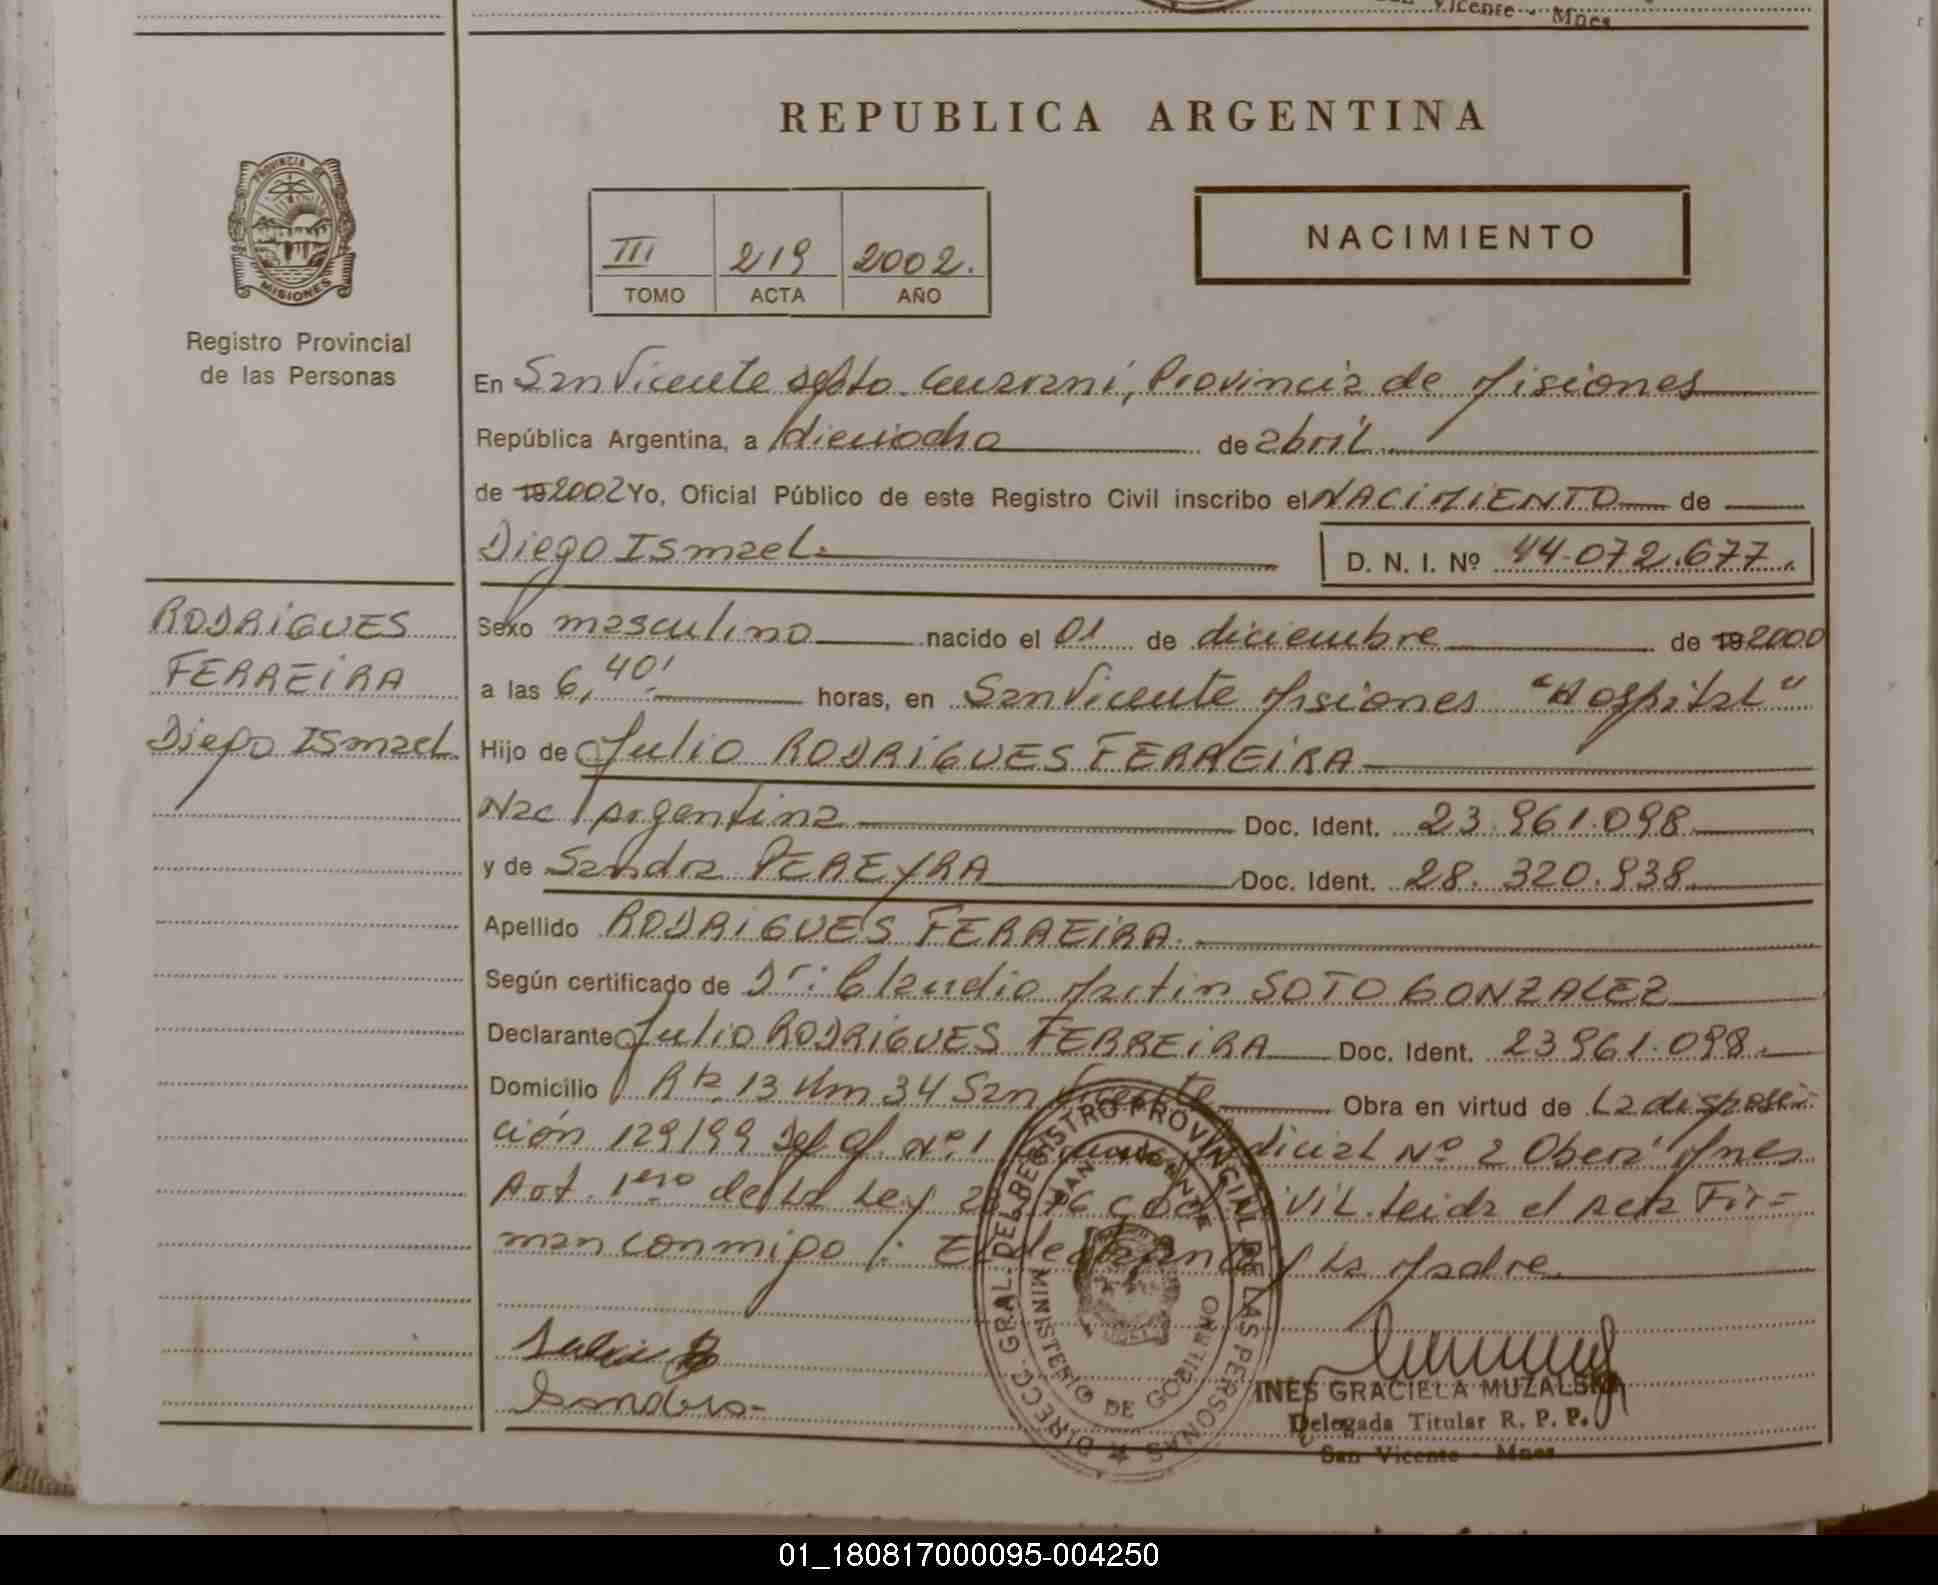 Vicente - Mnes
REPUBLICA ARGENTINA
PROVINCIA DE
MISIONES
Registro Provincial
de las Personas
III 219 2002.
TOMO ACTA AÑO
NACIMIENTO
En San Vicente Dpto. Guaraní, Provincia de Misiones
República Argentina, a dieciocho de abril
de 19 2002 Yo, Oficial Público de este Registro Civil inscribo el NACIMIENTO de
Diego Ismael.
D. N. I. Nº 44.072.677.
RODRIGUES
FERREIRA
Diego Ismael
Sexo masculino nacido el 01 de diciembre de 19 2000
a las 6,40' horas, en San Vicente Misiones "Hospital"
Hijo de Julio RODRIGUES FERREIRA
Nac Argentina Doc. Ident. 23.961.098
y de Sandra PEREYRA Doc. Ident. 28.320.938
Apellido RODRIGUES FERREIRA
Según certificado de Dr: Claudio Martin SOTO GONZALEZ
Declarante Julio RODRIGUES FERREIRA Doc. Ident. 23961.098.
Domicilio Rta 13 Km 34 San Vicente Obra en virtud de La disposi-
ción 129/99 Def. Of. Nº 1 Nº 2 Oberá Mnes
Art. 1ero de La Ley Civil. Leida el acta Fir=
man conmigo: El declarante y La Madre
Julio R
Sandra
DIRECC. GRAL. DEL REGISTRO PROVINCIAL DE LAS PERSONAS
MINISTERIO DE GOBIERNO
INES GRACIELA MUZALSKI
Delegada Titular R. P. P.
San Vicente - Mnes
01_180817000095-004250